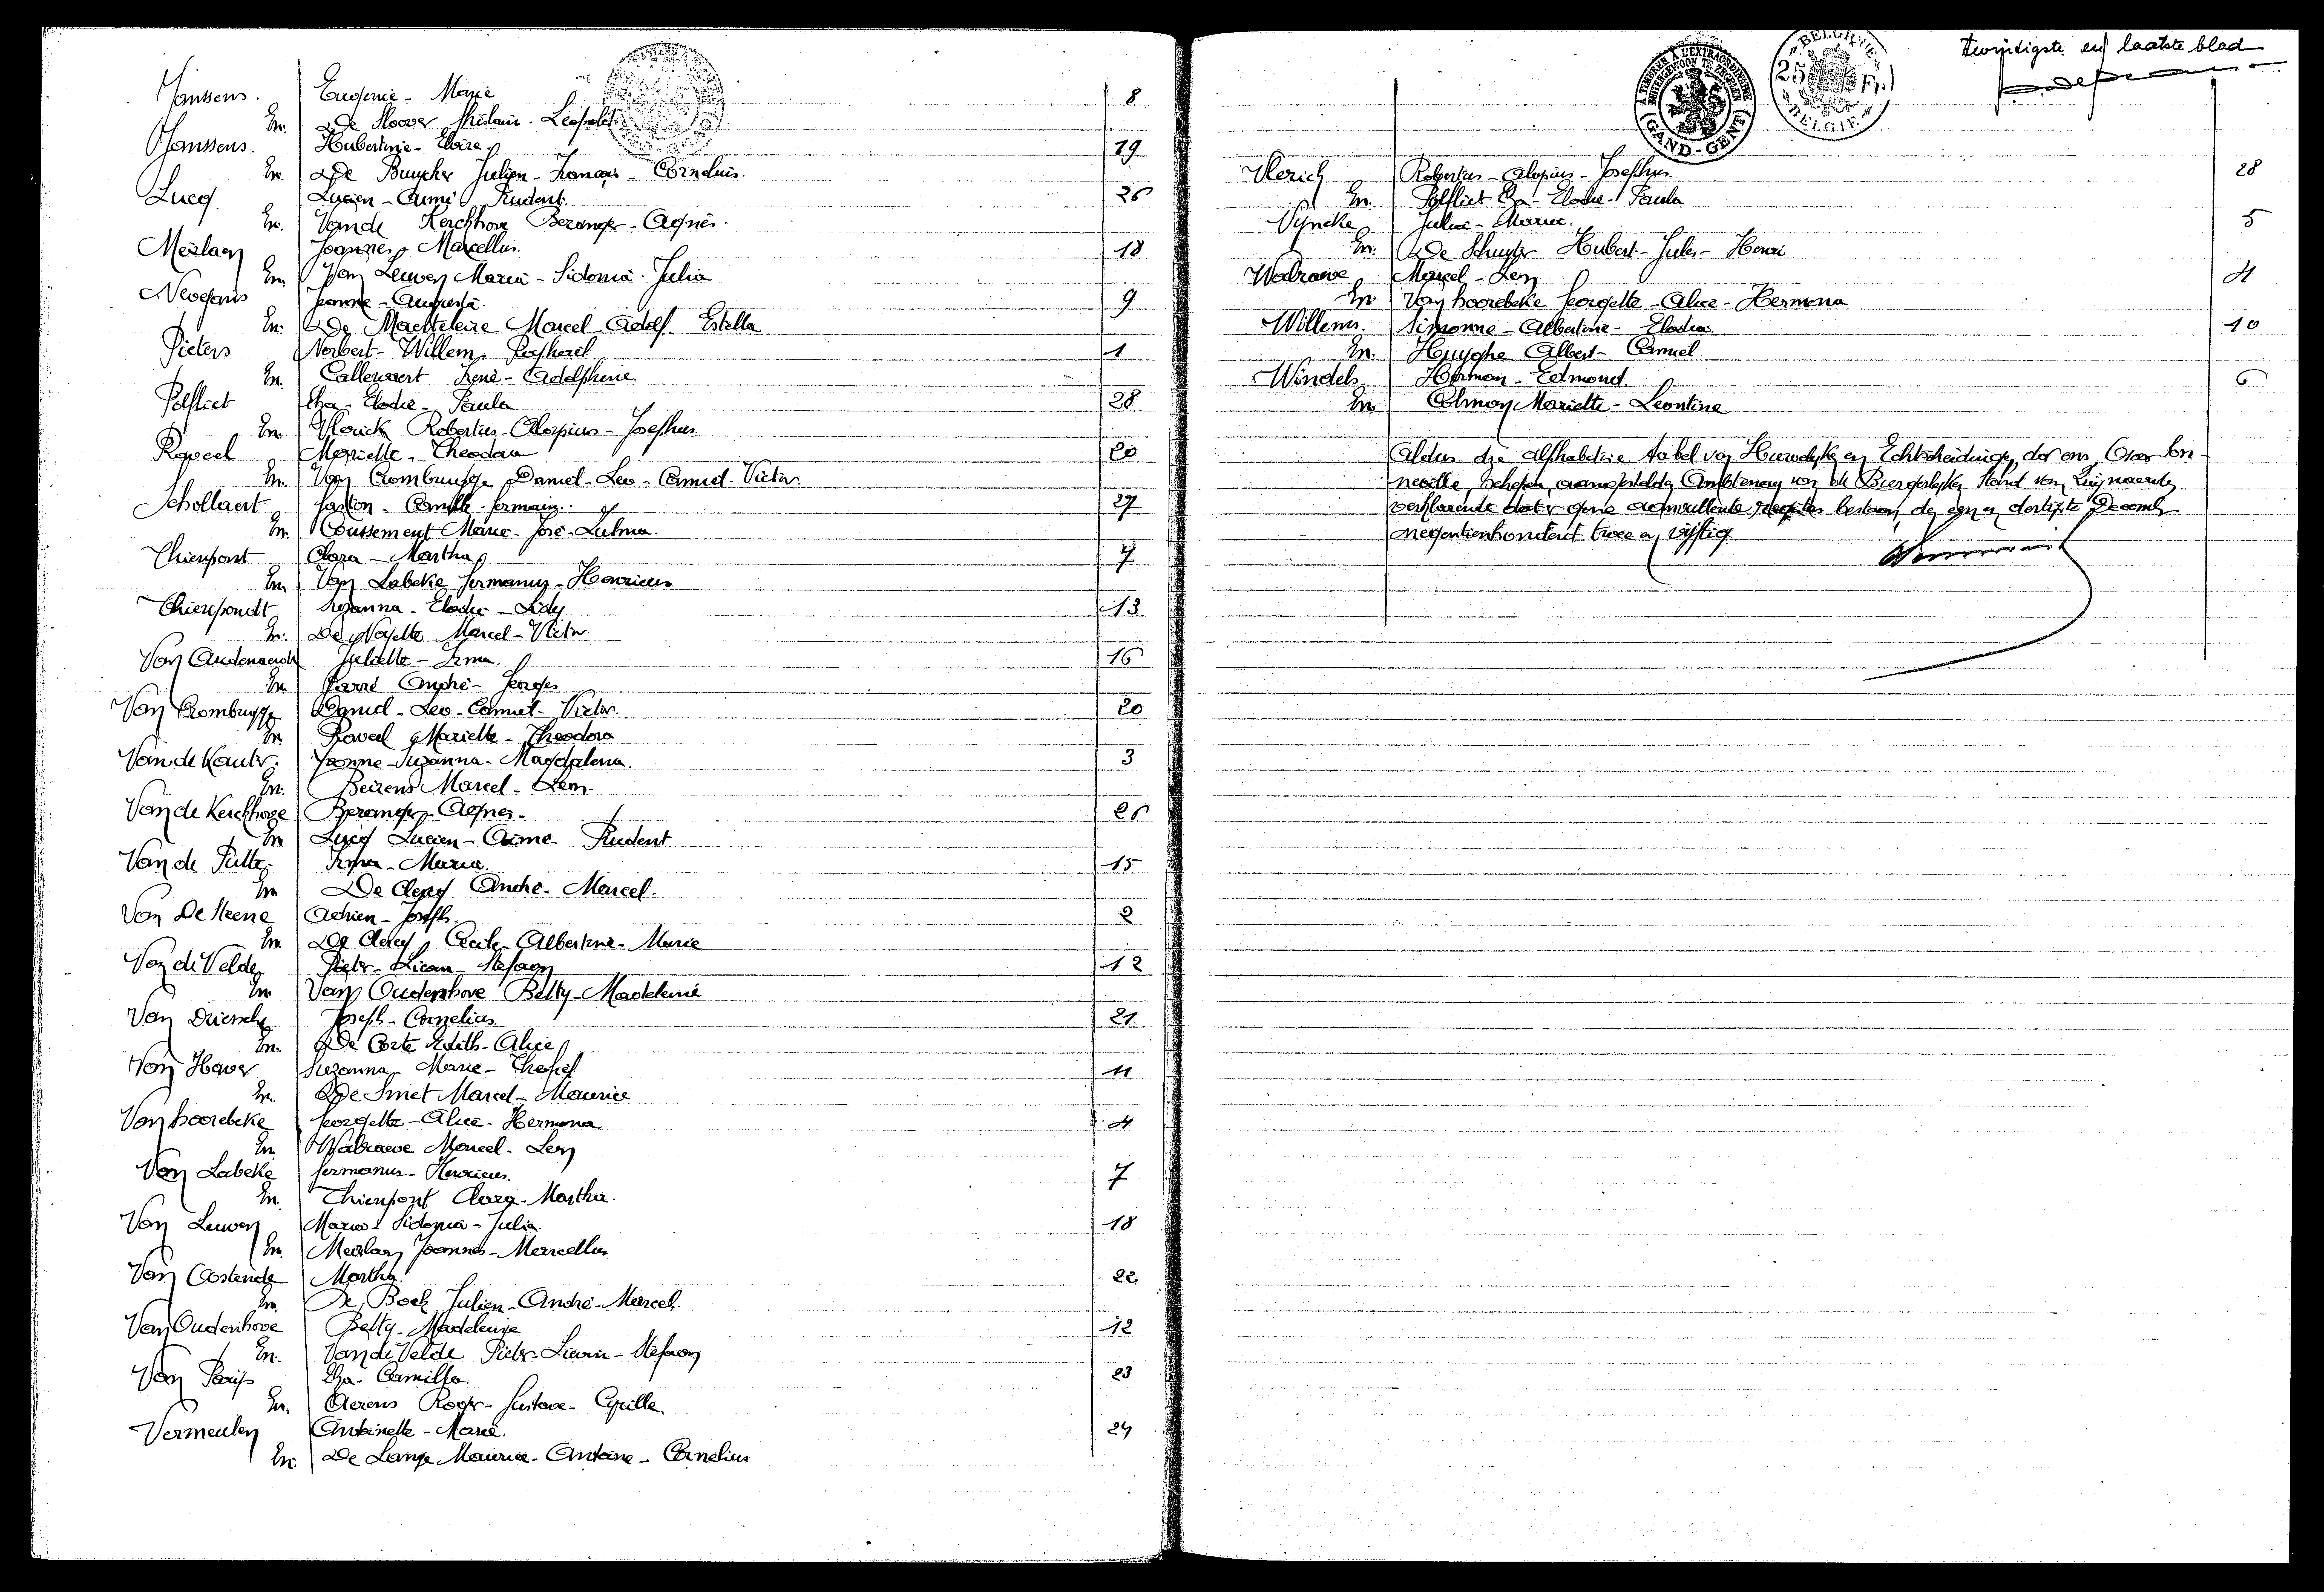 Janssens. Eugenie - Marie 8
En. De Hoover Ghislain - Leopold
Janssens. Hubertine - Elvire 19
En. De Buyscher Julien - François - Cornelius.
Lucq. Lucien - Aimé Prudent. 26
En. Van de Kerckhove Beranger - Agnès.
Meirlaen Joannes - Marcellus. 18
En. Van Leuven Maria - Sidonia - Julia
Nevejans Jeanne - Augusta. 9
En. De Maertelaire Marcel - Adolf Estella
Pieters Norbert - Willem - Raphaël 1
En. Callewaert Irenè - Adolphine.
Polfliet Elza - Elodie - Paula 28
En. Vlerick Robertus - Aloysius - Josephus
Roveel Mariette - Theodora 20
En. Van Crombrugge Daniel - Leo - Camiel - Victor.
Schollaert Gaston - Camille - Germain. 27
En. Coussement Marie - José - Zulma.
Thienpont Clara - Martha 7
En. Van Labeke Germanus - Henricus
Thienpondt Suzanna - Elodie - Lidy 13
En. De Nayette Marcel - Victor
Van Audenaerde Juliette - Irma. 16
En. Parré André - Georges
Van Crombrugge Daniel - Leo - Camiel - Victor. 20
En. Roveel Mariette - Theodora
Van de Kauter. Yvonne - Suzanna - Magdalena. 3
En. Beirens Marcel - Leon.
Van de Kerckhove Beranger - Agnes. 26
En Lucq Lucien - Aimé - Prudent
Van de Putte Irma - Maria. 15
En De Clercq André - Marcel.
Van De Steene Adrien - Joseph. 2
En De Clercq Cecile - Albertine - Marie
Van de Velde Pieter - Lieven - Stefaan 12
En Van Oudenhove Betty - Madeleine
Van Driessche Joseph - Cornelius 21
En. De Corte Edith - Alice
Van Hover Suzanna - Marie - Theresé 11
En. De Smet Marcel - Maurice
Van hoorebeke Georgette - Alice - Hermena 4
En Walraeve Marcel - Leon
Van Labeke Germanus - Henricus. 7
En. Thienpont Clara - Martha.
Van Leuven Maria - Sidonia - Julia. 18
En. Meirlaen Joannes - Marcellus
Van Oostende Martha. 22
En De Bock Julien - André - Marcel.
Van Oudenhove Betty - Madeleine 12
En. Van de Velde Pieter - Lieven - Stefaan
Van Parijs Elza - Camilla. 23
En. Aerens Roger - Gustave - Cyrille.
Vermeulen Antoinette - Marie. 24
En. De Lange Maurice - Antoine - Cornelius
twintigste en laatste blad
A TIMBRER A L'EXTRAORDINAIRE
BUITENGEWOON TE ZEGELEN
(GAND-GENT)
BELGIQUE
25 Fr.
BELGIE
Vlerick Robertus - Aloysius - Josephus. 28
En. Polfliet Elza - Elodie - Paula
Vyncke Julia - Maria. 5
En. De Schuyter Hubert - Jules - Henri
Walraeve Marcel - Leon 4
En. Van hoorebeke Georgette - Alice - Hermena
Willems. Simonne - Albertine - Elodia. 10
En. Huyghe Albert - Camiel
Windels Herman - Edmond. 6
En Colman Mariette - Leontine
Aldus die alphabetise tabel van Huwelijk en Echtscheidingen door ons,
neville, Schepen, aangestelde Ambtenaar van de Burgerlijken Stand van Zwijnaarde,
verklarende dat er geene aanvullende registers bestaan, den een en dertigste December
negentienhonderd twee en vijftig